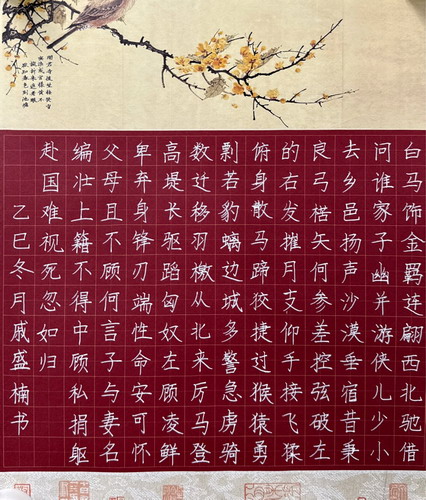 白马饰金羁连翩西北驰借
问谁家子幽并游侠儿少小
去乡邑扬声沙漠垂宿昔秉
良弓楛矢何参差控弦破左
的右发摧月支仰手接飞猱
俯身散马蹄狡捷过猴猿勇
剽若豹螭边城多警急虏骑
数迁移羽檄从北来厉马登
高堤长驱蹈匈奴左顾凌鲜
卑弃身锋刃端性命安可怀
父母且不顾何言子与妻名
编壮上籍不得中顾私捐躯
赴国难视死忽如归
乙巳冬月戚盛楠书